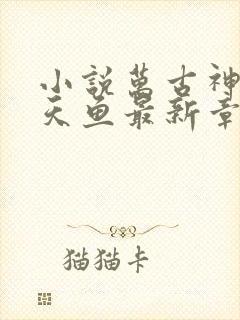 小説萬古神
天魚最新章
猫猫卡